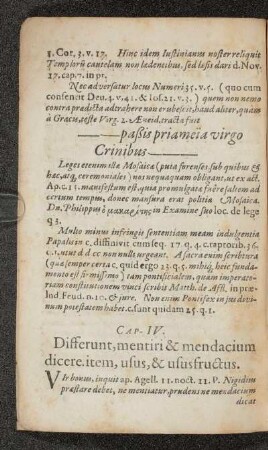 1. Cor. 3. v. 17. Hinc idem Iustinianus noster reliquit
Templorũ cautelam non ledentibus, sed læsis dari d. Nov.
17. cap. 7. in pr.
Nec adversatur locus Numeri 35. v. 5. (quo cum
consenit Deu. 4. v. 41. & Ios. 21. v. 3.) quem non nemo
contra prædicta adtrahere non erubescit, haud aliter, quam
à Græcis, teste Virg. 2. Æneid. tracta fuit
passis priameïa virgo
Crinibus
Leges etenim istæ Mosaicæ (puta forenses, sub quibus &
hæc, acq; ceremoniales) nos nequaquam obligant, ne ex act.
Ap. c. 15. manifestum est, quia promulgatæ fuêre saltem ad
certum tempus, donec mansura erat politia Mosaica.
Dn. Philippus ὁ μακαρίτης in Examine suo loc. de lege
q. 3.
Multo minus infringit sententiam meam indulgentia
Papalis in c. diffinivit cum seq. 17. q. 4. c. raptoris. 36.
q. 1. neu d d cc non nulli urgeant. A sacra enim scriptura
(quæ semper certa c. quid ergo 23. q. 5. mihiq; heic funda-
mento est firmissimo) tam pontificialem, quam imperati-
riam constitutionem vinci scribit Matth. de Affl. in præ-
lud. Feud. n. 10. & jure. Non enim Pontifex in jus divi-
num potestatem habet. c. sunt quidam 25. q. 1.
CAP. IV.
Differunt, mentiri & mendacium
dicere. item, usus, & ususfructus.
VIr bonus, inquit ap. Agell. 11. noct. 11. P. Nigidius
præstare debet, ne mentiatur, prudens ne mendacium
dicat